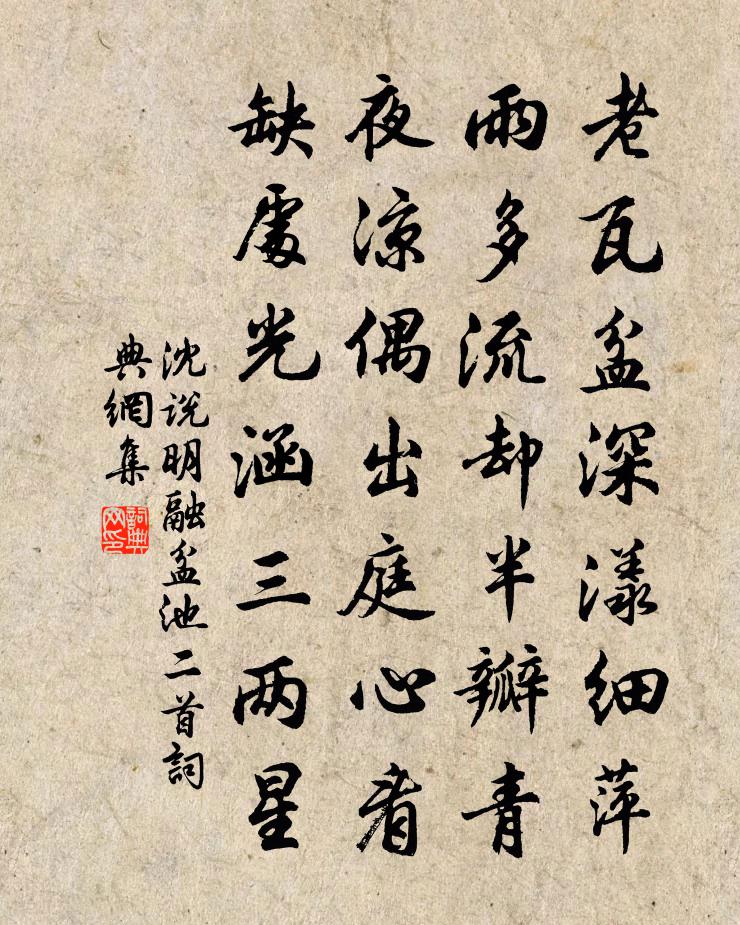 老瓦盆深漾細萍
雨多流却半瓣青
夜涼偶出庭心看
缺處光涵三两星
沈説明融盆池二首詞
典網集
詞典網印